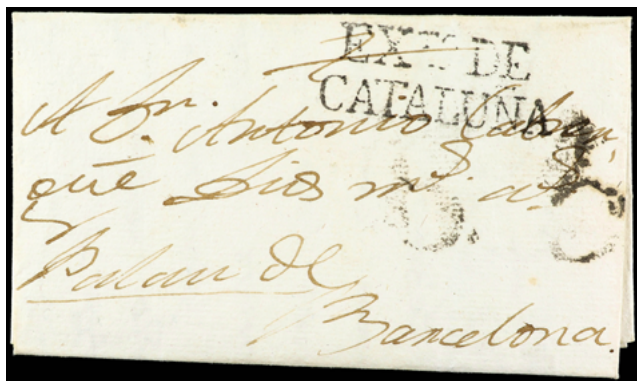 EXTO DE
CATALUÑA
A Sr. Antonio
que Dios ms. as.
Palau de
Barcelona